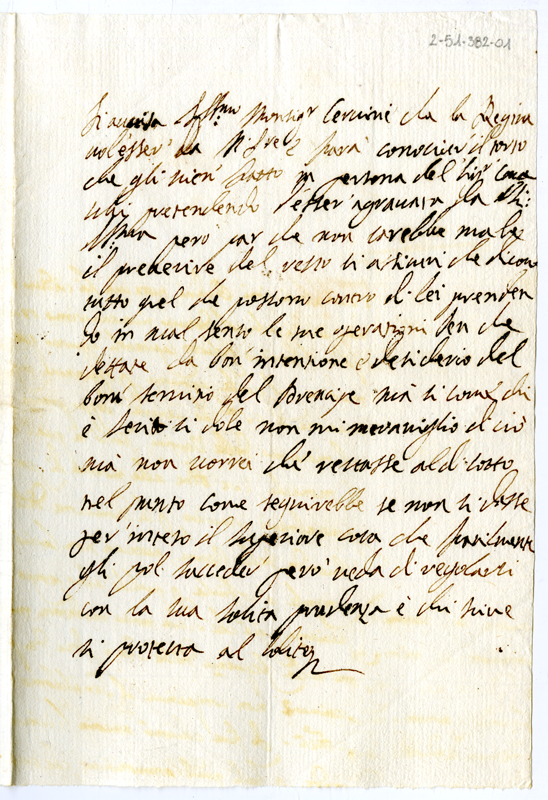 2-51-382-01
Si avvisa Ill.mo Monsig.r Cervini che la Regina
vol esser da farà conoscier il torto
che gli vien fatto in persona del
pretendendo d'esser agravata da
Ill.ma però par che non sarebbe male
il del resto si assicuri che dicon
tutto quel che possono contro di lei prenden
do in mal senso le sue operazioni ben che
dettate da bon intenzione e desiderio del
bon servizio del Prencipe mà si come chi
è si dole non mi meraviglio di ciò
mà non vorrei ch'è restasse al di sotto
nel punto come seguirebbe se non si dasse
per inteso il superiore cosa che facilmente
gli pol succeder però veda di regolarsi
con la sua solita prudenza è chi scrive
si protesta al solito